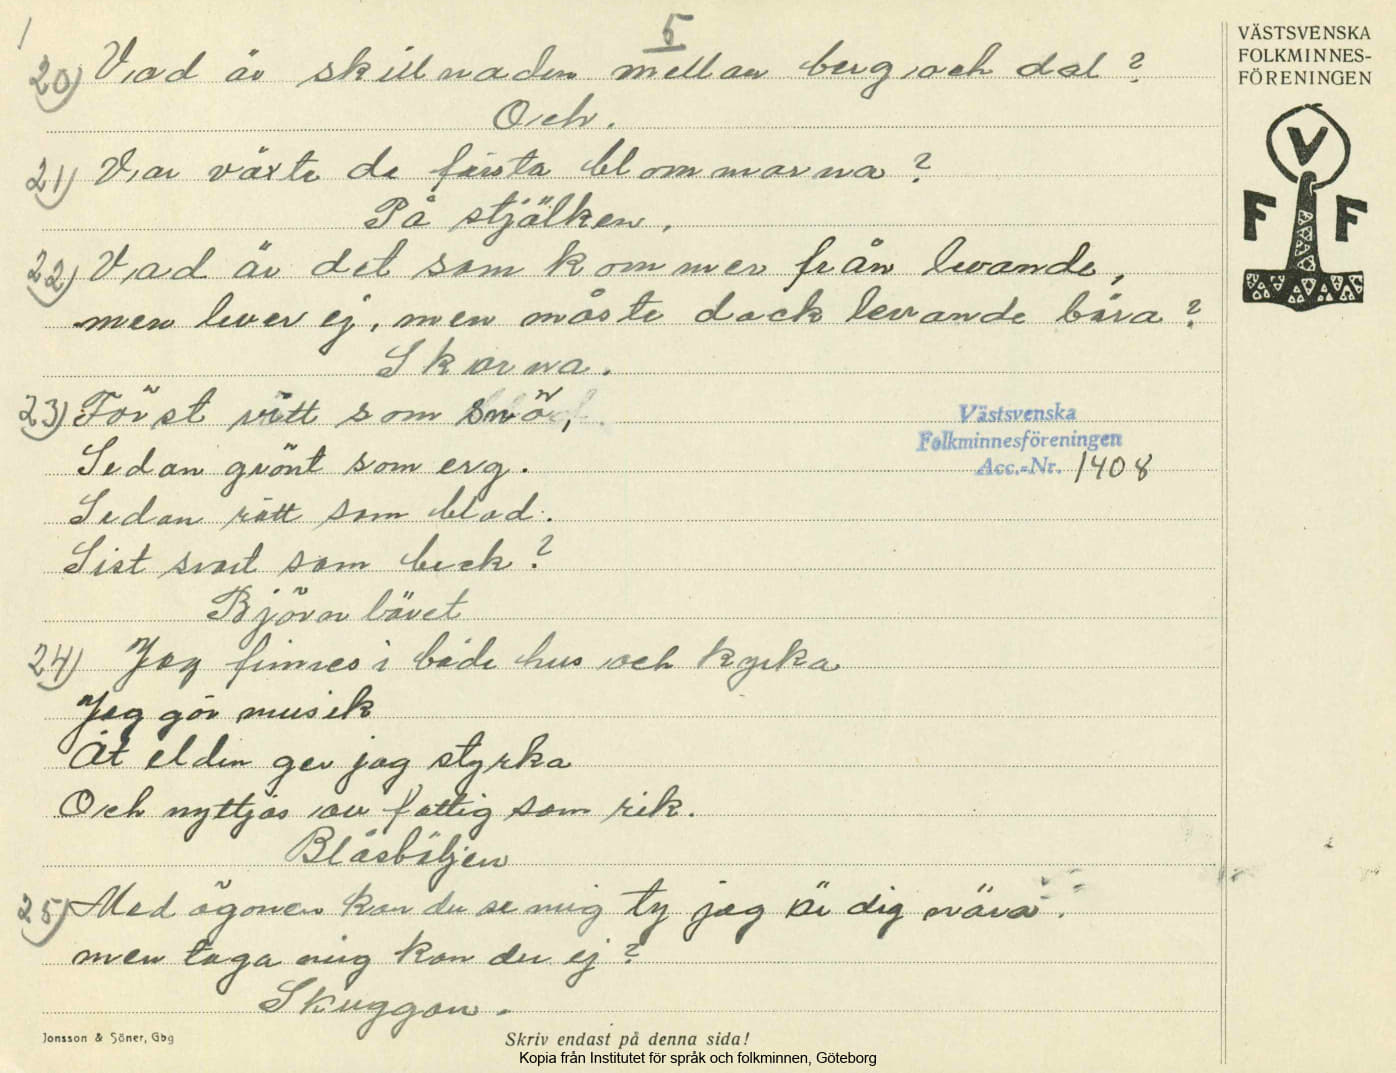 5
20) Vad är skillnaden mellan berg och dal?
Och.
21) Var växte de första blommorna?
På stjälken.
22) Vad är det som kommer från levande,
men lever ej, men måste dock levande bära?
Skorna.
23) Först vitt som snö,
Sedan grönt som erg.
Sedan rött som blod.
Sist svart som beck?
Björnbäret
24) Jag finnes i både hus och kyrka
Jag gör musik
Åt elden ger jag styrka
Och nyttjas av fattig som rik.
Blåsbäljen
25) Med ögonen kan du se mig ty jag är dig nära.
men taga mig kan du ej?
Skuggan.
VÄSTSVENSKA
FOLKMINNES-
FÖRENINGEN
V
F F
Västsvenska
Folkminnesföreningen
Acc.-Nr. 1408
Jonsson & Söner, Gbg
Skriv endast på denna sida!
Kopia från Institutet för språk och folkminnen, Göteborg